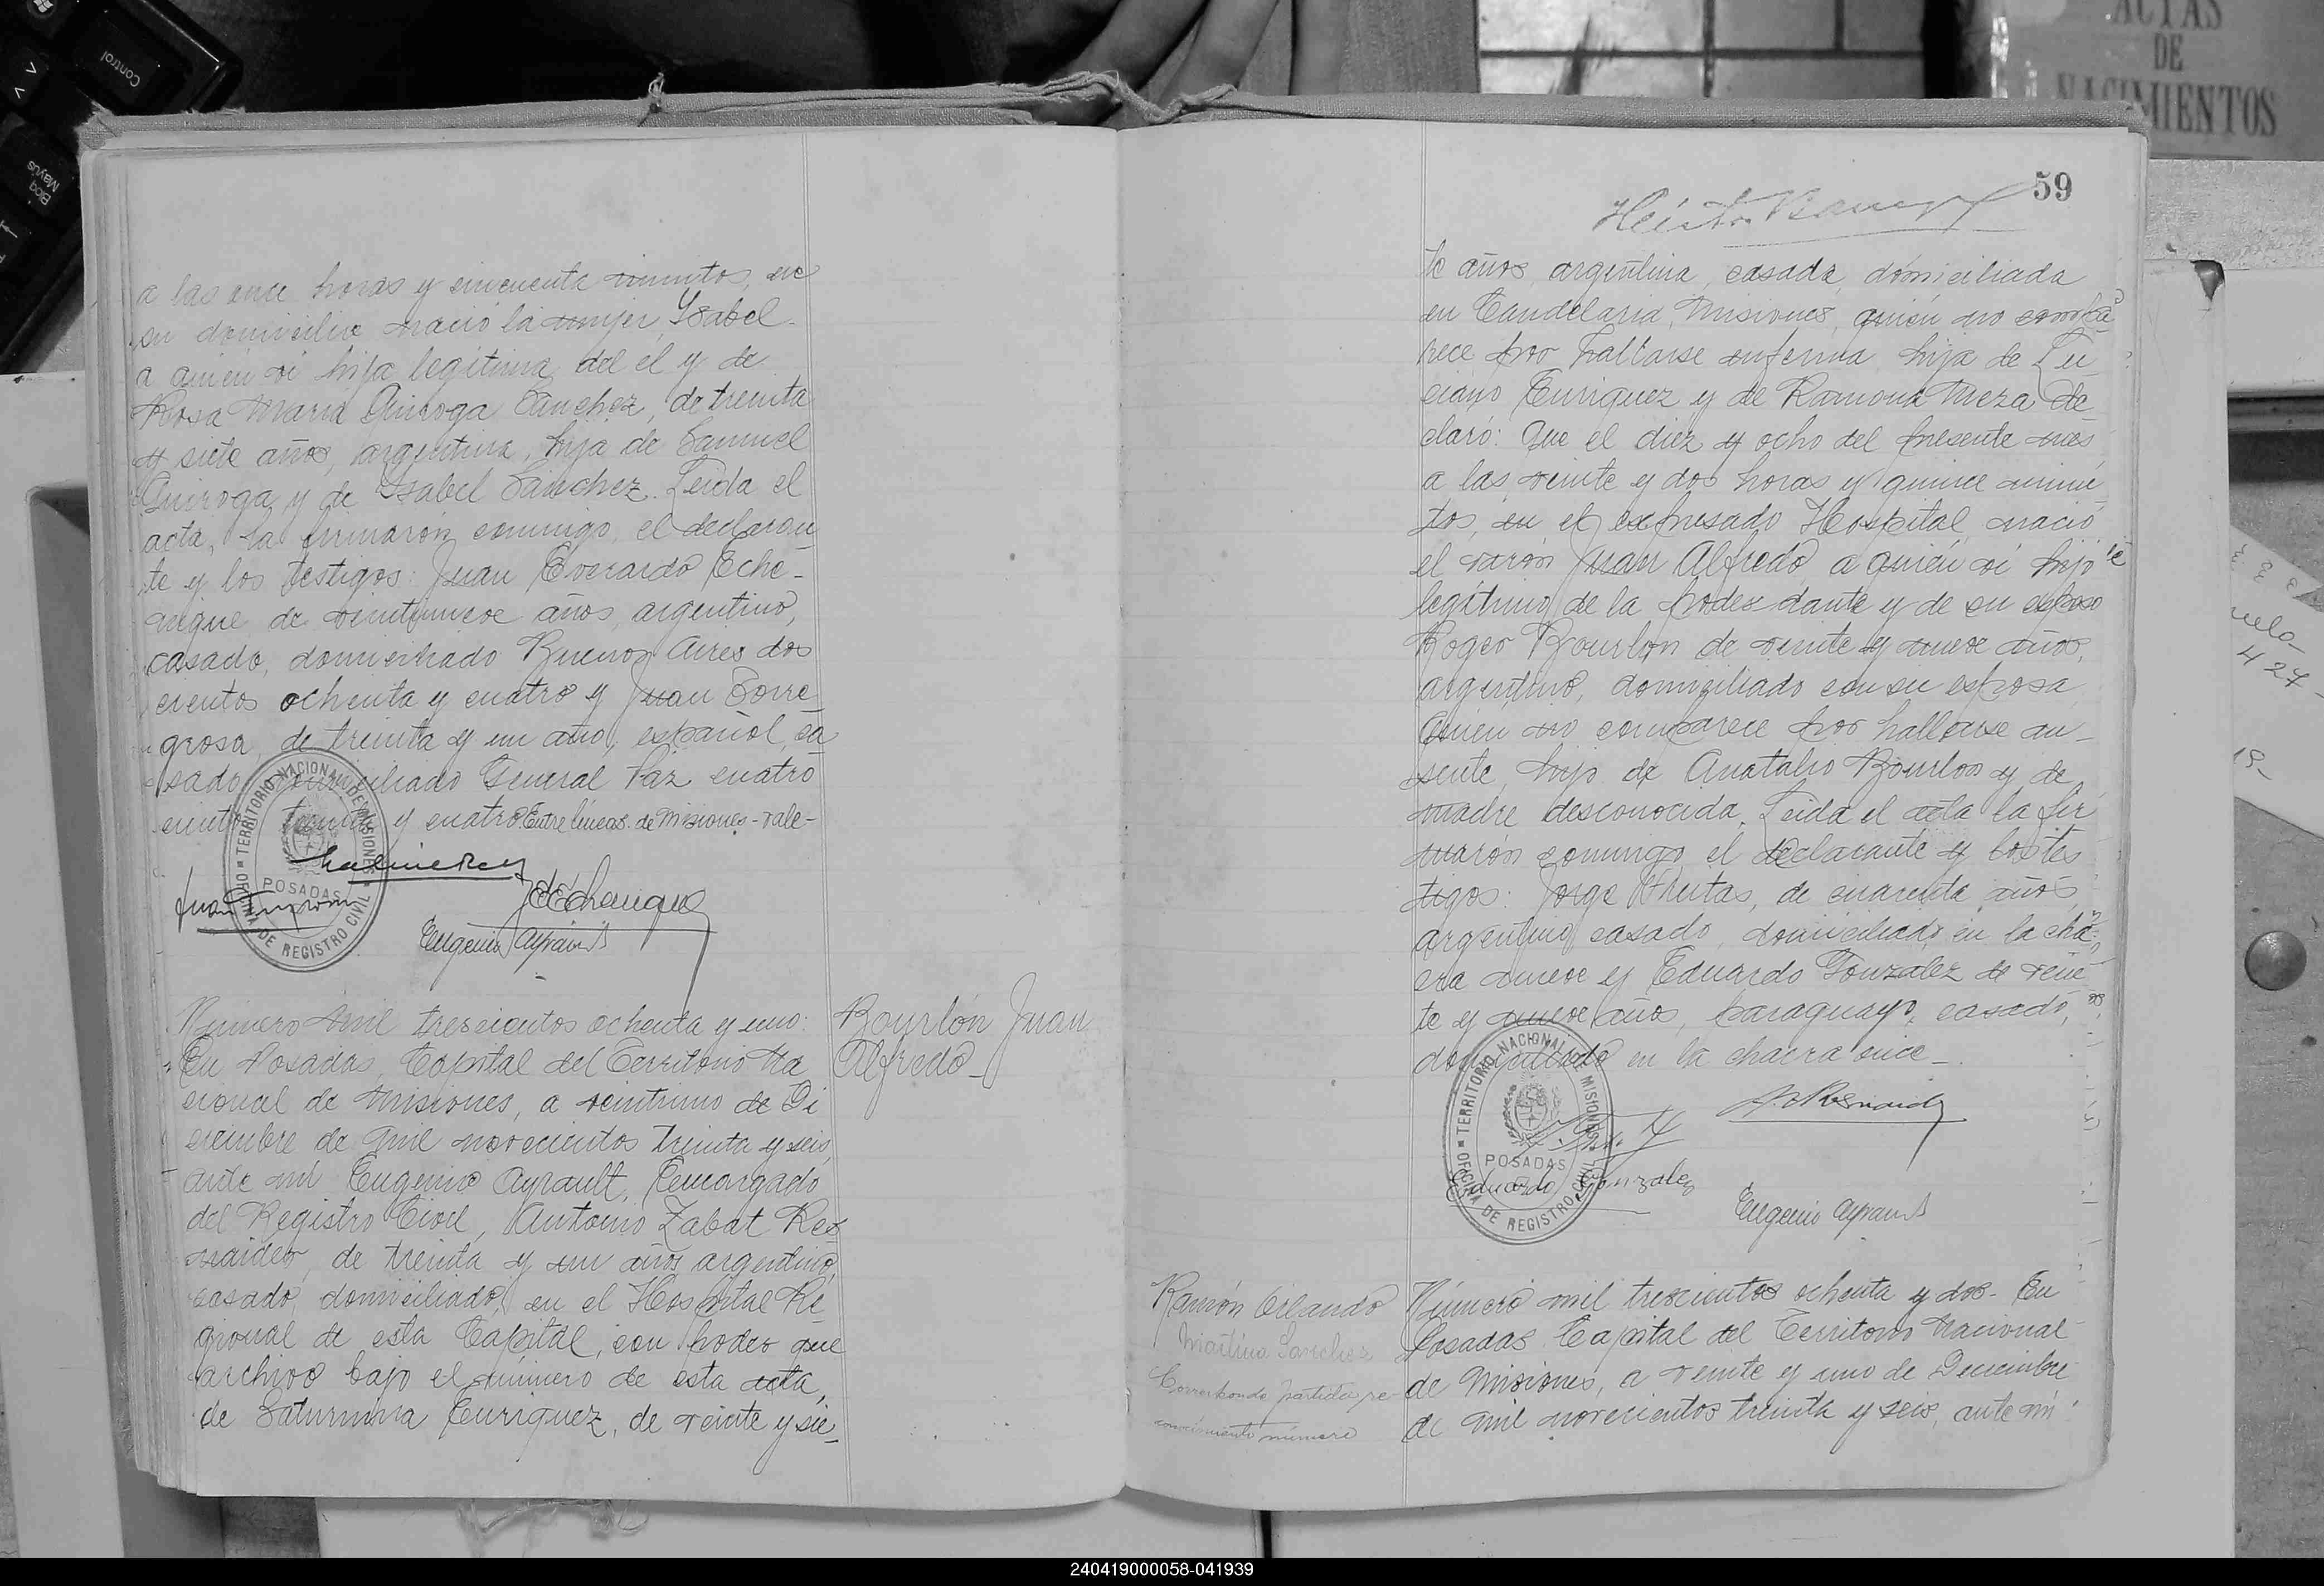 Control
Bloq
Mayús
ACTAS
DE
NACIMIENTOS
a las once horas y cincuenta minutos, en
su domicilio nació la mujer Ysabel
a quien vi hija legítima del él y de
Rosa Maria Quiroga Sanchez, de treinta
y siete años, argentina, hija de Samuel
Quiroga y de Isabel Sánchez. Leida el
acta, la firmaron conmigo, el declaran
te y los testigos: Juan Everardo Eche-
nique de veintinueve años, argentino,
casado, domiciliado Buenos Aires dos
cientos ochenta y cuatro y Juan Torre
grosa, de treinta y un año, español, ca
sado, domiciliado General Paz cuatro
cientos treinta y cuatro Entre líneas. de Misiones - vale-
TERRITORIO NACIONAL DE MISIONES
POSADAS
OFICINA DE REGISTRO CIVIL
Eugenio Ayrault
Número mil trescientos ochenta y uno:
En Posadas, Capital del Territorio Na
cional de Misiones, a veintiuno de Di
ciembre de mil novecientos treinta y seis,
ante mí Eugenio Ayrault, Encargado
del Registro Civil, Antonio Zabat Res
naider, de treinta y un años argentino,
casado, domiciliado, en el Hospital Re
gional de esta Capital, con poder que
archivo bajo el número de esta acta,
de Saturnina Enriquez, de veinte y sie_
Bourlón Juan
Alfredo_
59
te años, argentina, casada, domiciliada
en Candelaria, Misiones, quién no compa
rece por hallarse enferma, hija de Lu
ciano Enriquez y de Ramona Meza De
claró: Que el diez y ocho del presente mes
a las veinte y dos horas y quince minu
tos, en el expresado Hospital, nació
el varón Juan Alfredo, a quién vi hijo
legítimo de la poder dante y de su esposo
Roger Bourlon de veinte y nueve años,
argentino, domiciliado con su esposa
quien no comparece por hallarse au_
sente, hijo de Anatalio Bourlon y de
madre desconocida. Leida el acta la fir
maron conmigo el declarante y los tes
tigos: Jorge Frutas, de cuarenta años,
argentino casado, domiciliado en la chá
cra nueve y Eduardo Gonzalez de vein
te y nueve años, paraguayo, casado,
domiciliado en la chacra once_
TERRITORIO NACIONAL DE MISIONES
POSADAS
OFICINA DE REGISTRO CIVIL
Eduardo Gonzalez
Eugenio Ayrault
Ramón Orlando
Martina Sanchez
Corresponde partida re-
conocimiento número
Número mil trescientos ochenta y dos- En
Posadas Capital del Territorio Nacional
de Misiones, a veinte y uno de Diciembre
de mil novecientos treinta y seis, ante mí
240419000058-041939